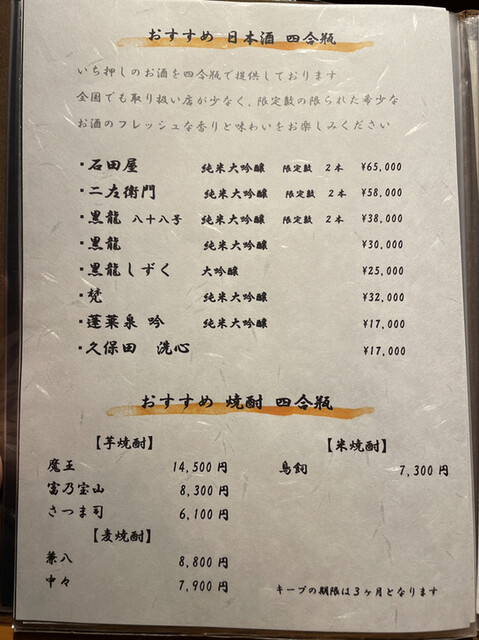 おすすめ 日本酒 四合瓶
いち押しのお酒を四合瓶で提供しております
全国でも取り扱い店が少なく、限定数の限られた希少な
お酒のフレッシュな香りと味わいをお楽しみください
・石田屋 純米大吟醸 限定数 2本 ¥65,000
・二左衛門 純米大吟醸 限定数 2本 ¥58,000
・黒龍 八十八号 純米大吟醸 限定数 2本 ¥38,000
・黒龍 純米大吟醸 ¥30,000
・黒龍しずく 大吟醸 ¥25,000
・梵 純米大吟醸 ¥32,000
・蓬莱泉 吟 純米大吟醸 ¥17,000
・久保田 洗心 ¥17,000
おすすめ 焼酎 四合瓶
【芋焼酎】
魔王 14,500円
富乃宝山 8,300円
さつま司 6,100円
【麦焼酎】
兼八 8,800円
中々 7,900円
【米焼酎】
鳥飼 7,300円
キープの期限は3ヶ月となります